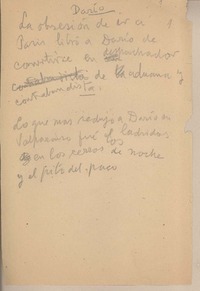 Darío
La obsesión de ir a
Paris libró a Darío de
convertirse en
de la aduana y
contrabandista.
Lo que mas sedujo a Darío en
Valparaiso fué los ladridos
en los cerros de noche
y el grito del paco